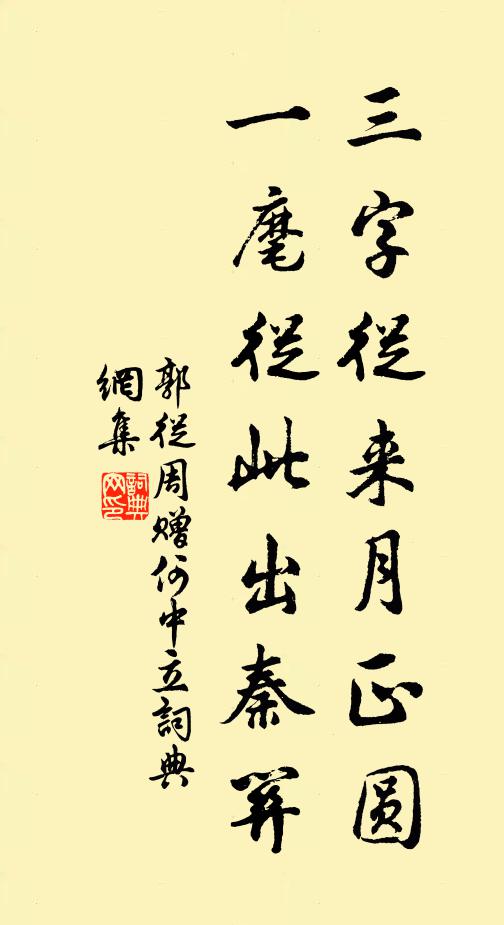 三字從来月正圆
一麾從此出秦關
郭從周赠何中立詞典
網集
詞典
网印